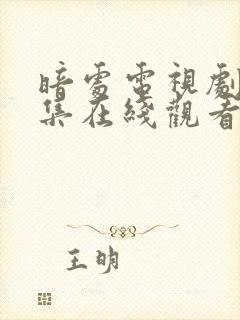 暗處電視劇
集在綫觀看
王明